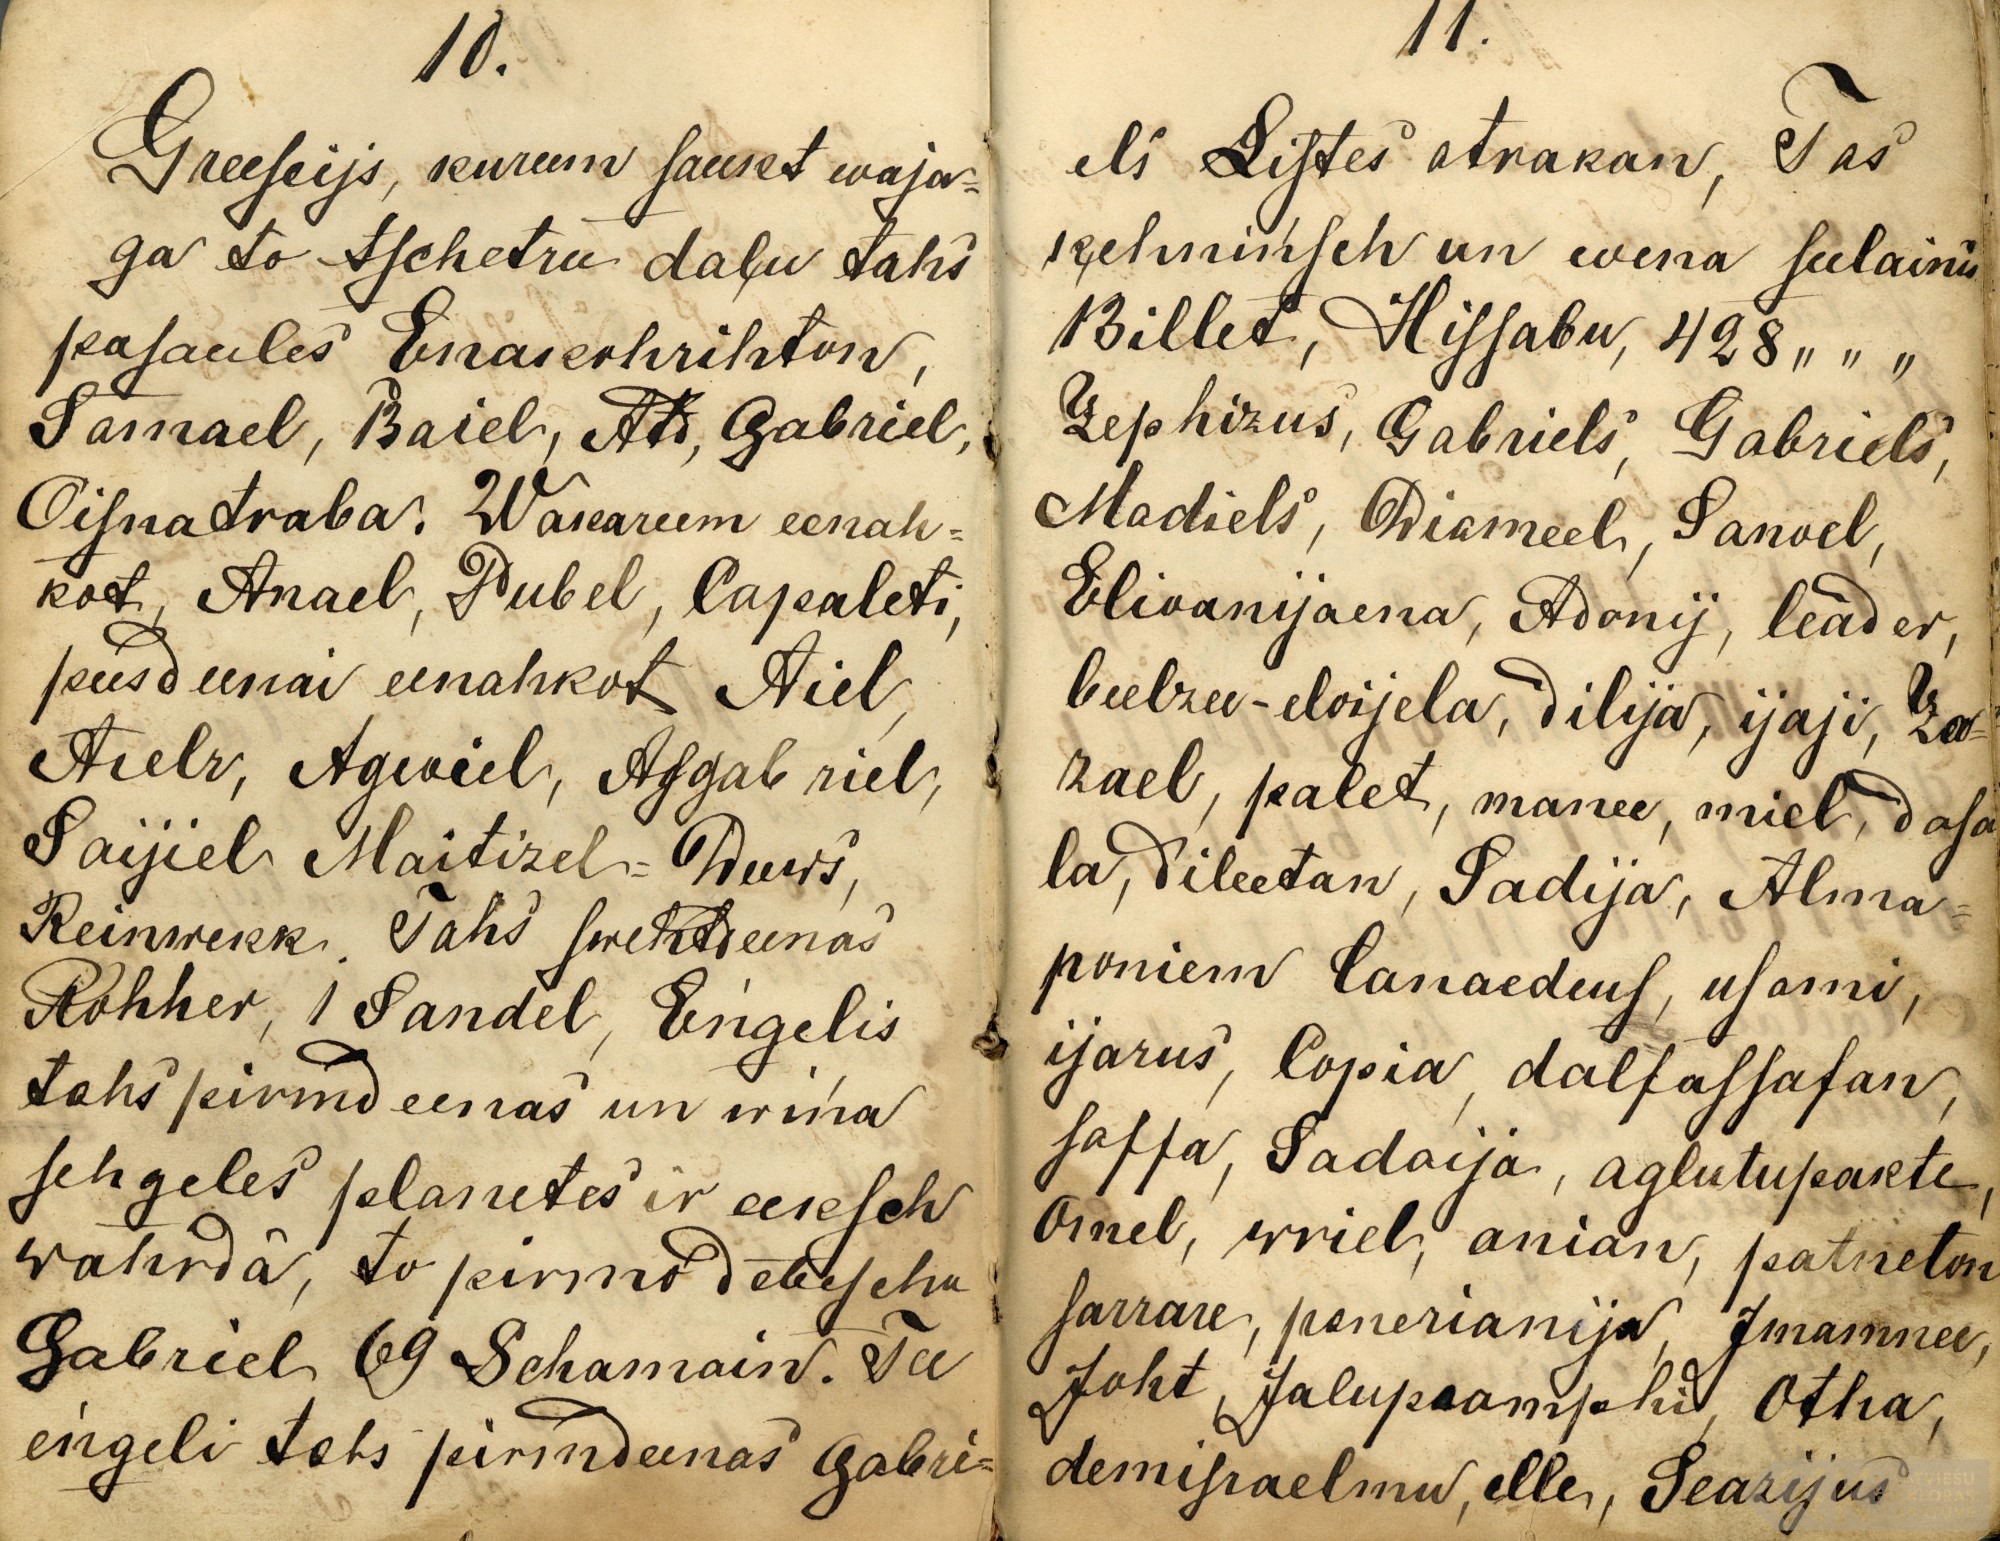 10.
Greeseijs, kureem saukt waja=
ga to tschetru daļu tahs
pasaules Enakohrihton,
Samael, Baiel, Ato, Gabriel,
Oisnatraba. Wakareem eenah=
kot, Anael, Pubel, Capaleti,
pusdeenai eenahkot Aiel,
Aielr, Agwiel, Asgabriel,
Saijiel Maitizel=Deews,
Reinwekk. Tahs swehtdeenas
Rohher, 1 Sandel, Eņgelis
tahs pirmdeenas un wiņa
sehgeles planetes ir eeksch
wahrdâ, to pirmo debeschu
Gabriel 69 Schamain. Tee
eņgeli tahs pirmdeenas Gabri=
11.
els Listes atrakan, Tas
ķehniņsch un wena seelainis
Billet, Hissabu, 428 „ „ „
Zephizus, Gabriels, Gabriels,
Madiels, Diameel, Sanoel,
Elioanijaena, Adonij, leader,
beelzee-eloijela, dilija, ijaji, Za=
zael, palet, manee, miel, dasa
la, dileetan, Sadija, Alma=
poniem Canaedeus, usami,
ijarus, Copia, dalfassafan,
saffa, Sadaija, aglutupakte,
Omel, wriel, anian, patneton
sarrare, penerianija, Imamnee,
Joht, Jalupaamphi, Otha,
demisraelmu, elle, Seazijus